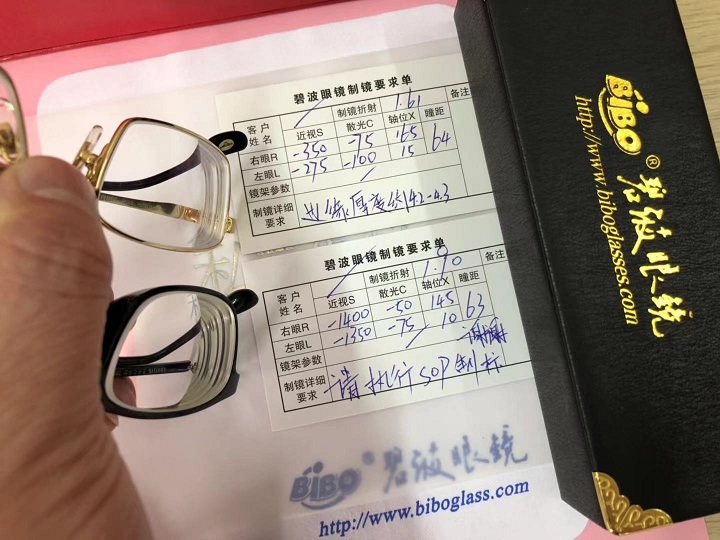 碧波眼镜制镜要求单
客户姓名 近视S 制镜折射 1.61 备注
散光C 轴位X 瞳距
右眼R -350 -75 165 64
左眼L -275 -100 15
镜架参数
制镜详细要求 边缘厚度约4.2-4.3
碧波眼镜制镜要求单
客户姓名 近视S 制镜折射 1.90 备注
散光C 轴位X 瞳距
右眼R -1400 -50 145 63
左眼L -1350 -75 10
镜架参数 谢谢
制镜详细要求 请执行SOP制标
BiBO® 碧波眼镜
http://www.biboglass.com
BiBO® 碧波眼镜
http://www.biboglasses.com